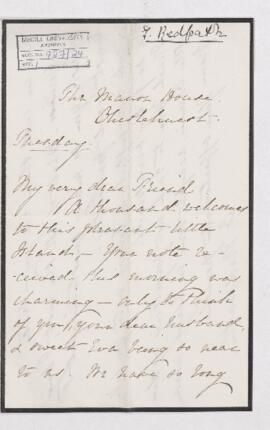 McGILL UNIVERSITY
ARCHIVES
ACC. NO. 927/24
REF.
F. Redpath
The Manor House.
Chislehurst.
Tuesday.
My very dear Friend
A thousand welcomes
to this pleasant little
Island. – Your note re-
-ceived this morning was
charming – only to think
of you, your dear husband,
& sweet Eva being so near
to us. We have so long